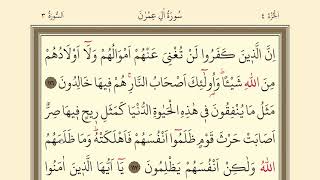 الجزء ٤ سورة اٰل عمرٰن السورة ٣
اِنَّ الَّذٖينَ كَفَرُوا لَنْ تُغْنِىَ عَنْهُمْ اَمْوَالُهُمْ وَلَٓا اَوْلَادُهُمْ
مِنَ اللّٰهِ شَيْـًٔاۜ وَاُو۬لٰٓئِكَ اَصْحَابُ النَّارِۚ هُمْ فٖيهَا خَالِدُونَ ﴿١١٦﴾
مَثَلُ مَا يُنْفِقُونَ فٖى هٰذِهِ الْحَيٰوةِ الدُّنْيَا كَمَثَلِ رٖيحٍ فٖيهَا صِرٌّ
اَصَابَتْ حَرْثَ قَوْمٍ ظَلَمُٓوا اَنْفُسَهُمْ فَاَهْلَكَتْهُۜ وَمَا ظَلَمَهُمُ
اللّٰهُ وَلٰكِنْ اَنْفُسَهُمْ يَظْلِمُونَ ﴿١١٧﴾ يَٓا اَيُّهَا الَّذٖينَ اٰمَنُوا